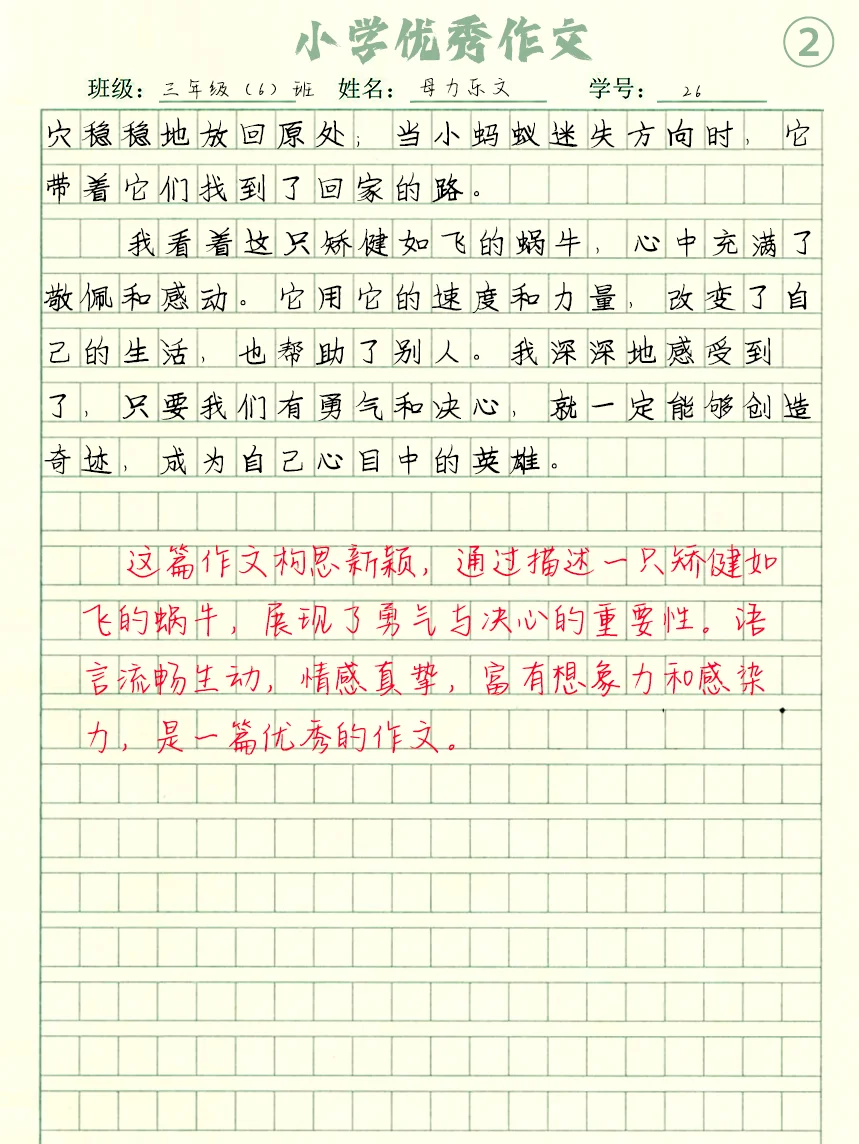 小学优秀作文
2
班级：三年级（6）班 姓名：母力乐文 学号：26
穴稳稳地放回原处；当小蚂蚁迷失方向时，它
带着它们找到了回家的路。
我看着这只矫健如飞的蜗牛，心中充满了
敬佩和感动。它用它的速度和力量，改变了自
己的生活，也帮助了别人。我深深地感受到
了，只要我们有勇气和决心，就一定能够创造
奇迹，成为自己心目中的英雄。
这篇作文构思新颖，通过描述一只矫健如
飞的蜗牛，展现了勇气与决心的重要性。语
言流畅生动，情感真挚，富有想象力和感染
力，是一篇优秀的作文。